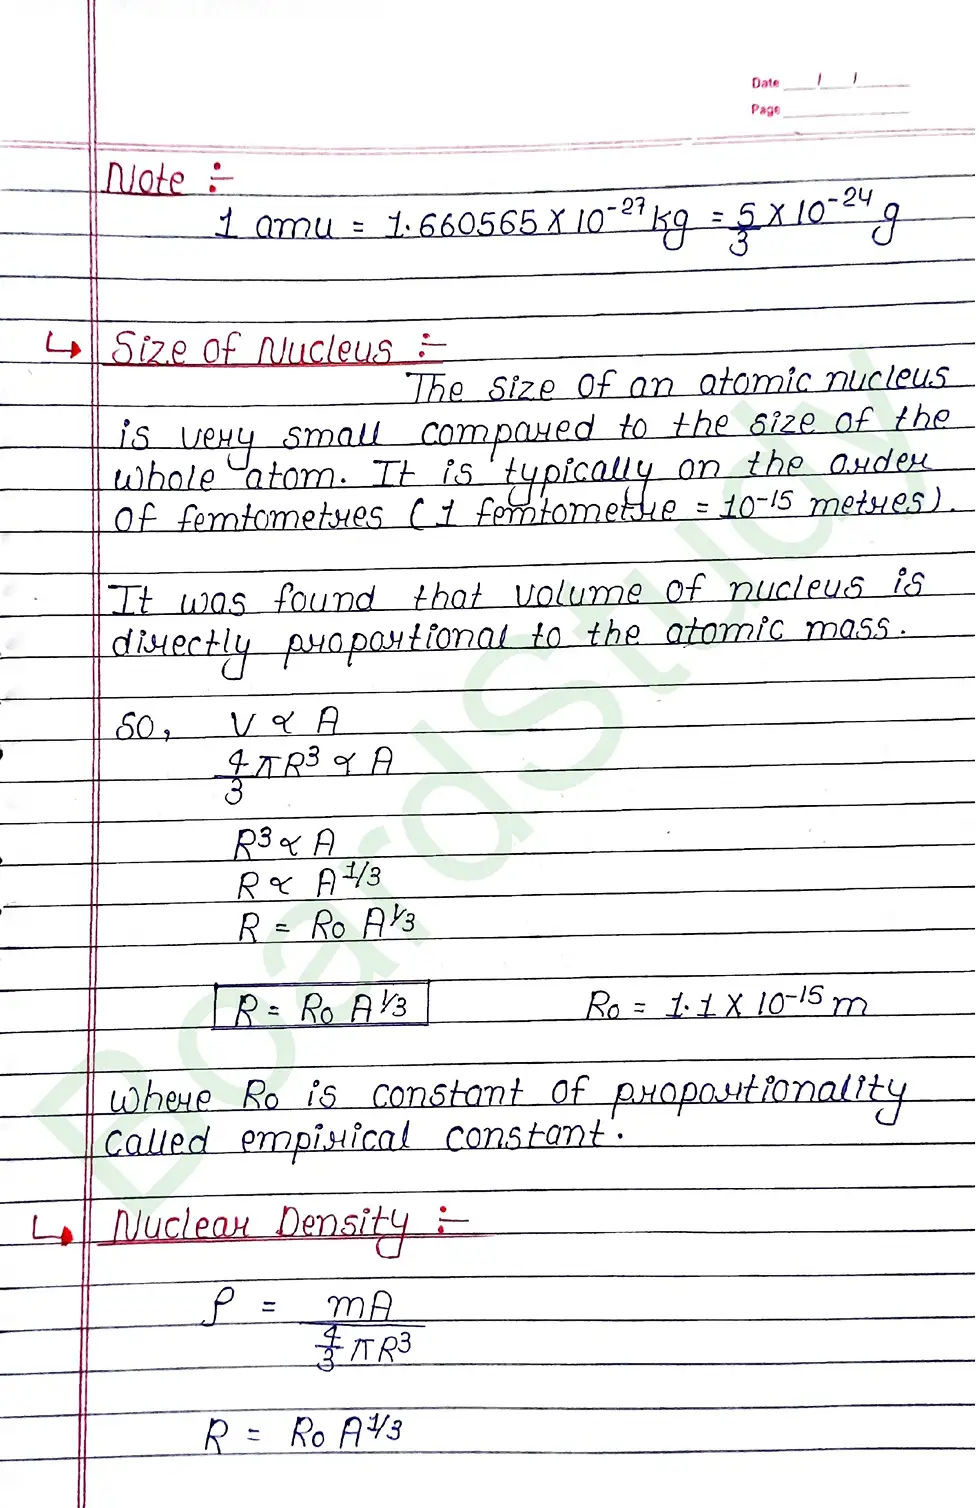 Date / /
Page
Note :-
1 amu = 1.660565 X 10⁻²⁷ kg = 5/3 X 10⁻²⁴ g
↳ Size of Nucleus :-
The size of an atomic nucleus
is very small compared to the size of the
whole atom. It is typically on the order
of femtometres (1 femtometre = 10⁻¹⁵ metres).
It was found that volume of nucleus is
directly proportional to the atomic mass.
So, V ∝ A
4/3 πR³ ∝ A
R³ ∝ A
R ∝ A^1/3
R = R₀ A^1/3
R = R₀ A^1/3 R₀ = 1.1 X 10⁻¹⁵ m
where R₀ is constant of proportionality
called empirical constant.
↳ Nuclear Density :-
ρ = mA / 4/3 πR³
R = R₀ A^1/3
BoardStudy